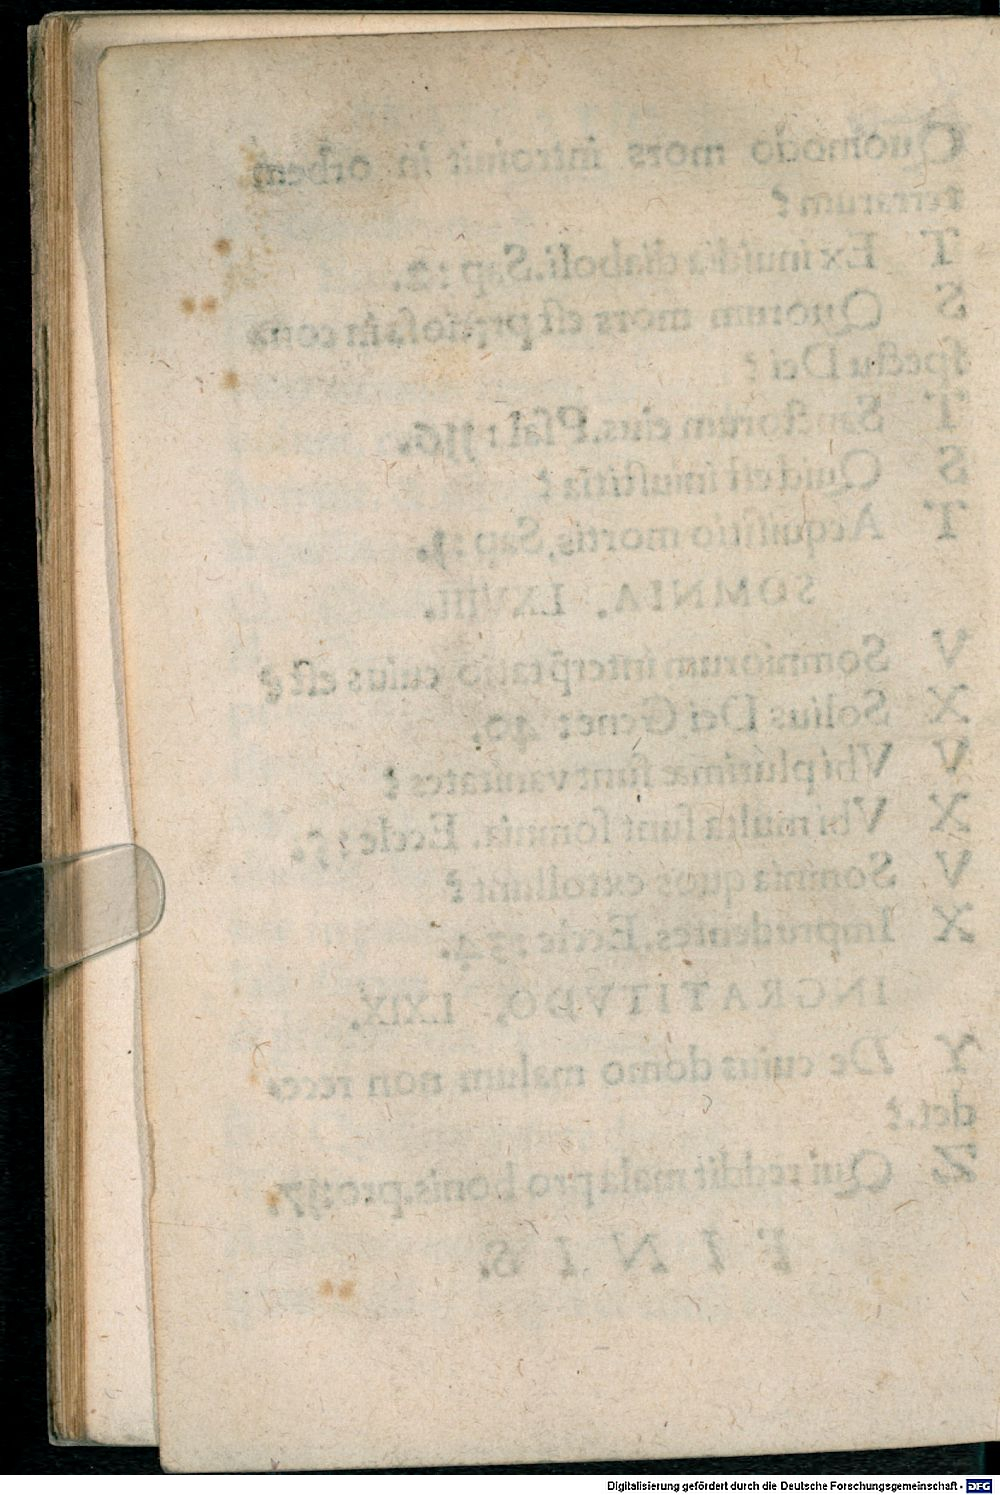 Quomodo mors introiuit in orbem
terrarum?
T Ex inuidia diaboli. Sap: 2.
S Quorum mors est preciosa in con
spectu Dei?
T Sanctorum eius. Psal: 116.
S Quid est iniustitia?
T Acquisitio mortis, Sap: 1.
SOMNIA. LXVIII.
V Somniorum interp̄tatio cuius est?
X Solius Dei Gene: 40.
V Vbi plurimæ sunt vanitates?
X Vbi multa sunt somnia. Eccle: 5.
V Somnia quos extollunt?
X Imprudentes. Eccle: 34.
INGRATITVDO. LXIX.
Y De cuius domo malum non rece-
det.?
Z Qui reddit mala pro bonis. pro: 17.
FINIS.
Digitalisierung gefördert durch die Deutsche Forschungsgemeinschaft - DFG